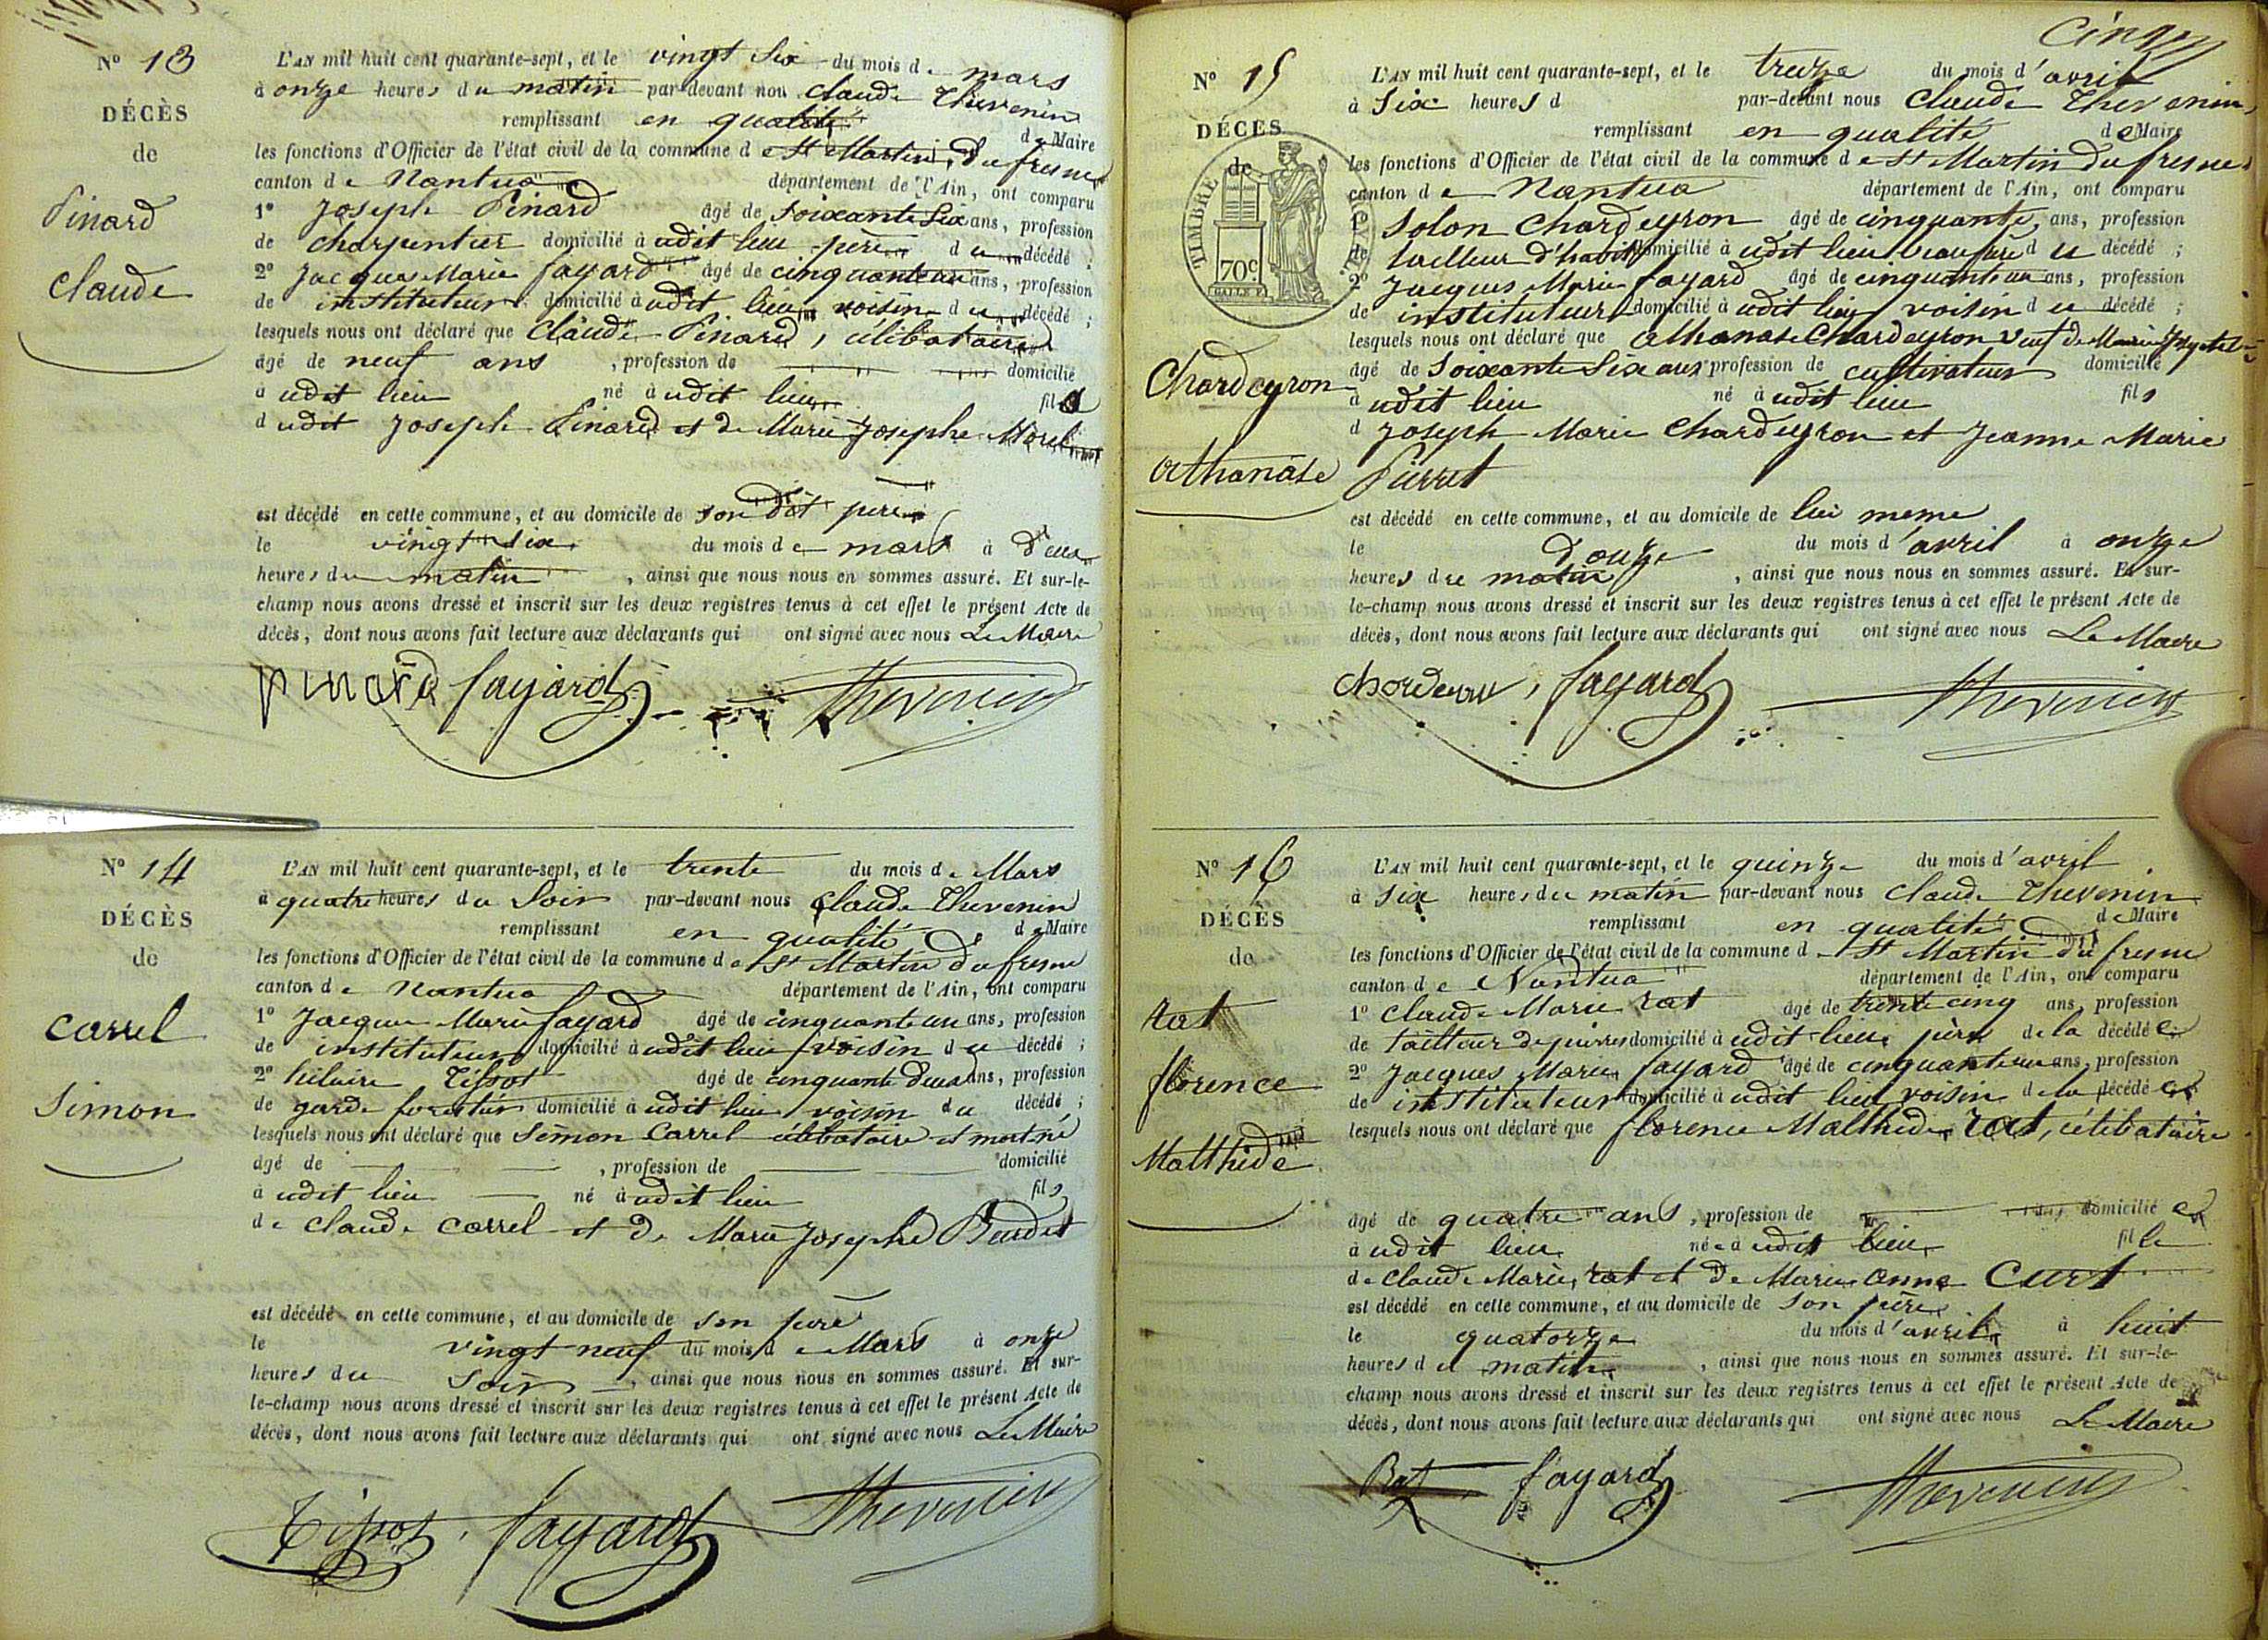 N° 13
DÉCÈS
de
Pinard
Claude
L'AN mil huit cent quarante-sept, et le vingt six du mois de mars
à onze heures du matin par-devant nou Claude Thevenin
remplissant en qualité de Maire
les fonctions d'Officier de l'état civil de la commune de St Martin du fresne
canton de Nantua département de l'Ain, ont comparu
1° Joseph Pinard âgé de soixante six ans, profession
de charpentier domicilié à udit lieu père du décédé ;
2° Jacques Marie fayard âgé de cinquante un ans, profession
de instituteur domicilié à udit lieu voisin du décédé ;
lesquels nous ont déclaré que Claude Pinard, célibataire
âgé de neuf ans , profession de domicilié
à udit lieu né à udit lieu fils
d udit Joseph Pinard et de Marie Josephe Morel
est décédé en cette commune, et au domicile de son dit père
le vingt six du mois de mars à deux
heures du matin , ainsi que nous nous en sommes assuré. Et sur-le-
champ nous avons dressé et inscrit sur les deux registres tenus à cet effet le présent Acte de
décès, dont nous avons fait lecture aux déclarants qui ont signé avec nous Le Maire
pinard fayard Thevenin
N° 14
DÉCÈS
de
Carrel
Simon
L'AN mil huit cent quarante-sept, et le trente du mois de Mars
à quatre heures du Soir par-devant nous Claude Thevenin
remplissant en qualité de Maire
les fonctions d'Officier de l'état civil de la commune de St Martin du fresne
canton de Nantua département de l'Ain, ont comparu
1° Jacques Marie fayard âgé de cinquante un ans, profession
de instituteur domicilié à udit lieu voisin du décédé ;
2° hilaire Tissot âgé de cinquante deux ans, profession
de garde forestier domicilié à udit lieu voisin du décédé ;
lesquels nous ont déclaré que Simon Carrel célibataire et mort né
âgé de , profession de domicilié
à udit lieu né à udit lieu fils
de Claude Carrel et de Marie Josephe Beudet
est décédé en cette commune, et au domicile de son père
le vingt neuf du mois de Mars à onze
heures du Soir , ainsi que nous nous en sommes assuré. Et sur-
le-champ nous avons dressé et inscrit sur les deux registres tenus à cet effet le présent Acte de
décès, dont nous avons fait lecture aux déclarants qui ont signé avec nous Le Maire
Tissot fayard Thevenin
Cinq
N° 15
DÉCÈS
de
TIMBRE
70c
Chardeyron
Athanase
L'AN mil huit cent quarante-sept, et le treize du mois d'avril
à Six heures d par-devant nous Claude Thevenin,
remplissant en qualité de Maire
les fonctions d'Officier de l'état civil de la commune de St Martin du fresne
canton de Nantua département de l'Ain, ont comparu
Solon Chardeyron âgé de cinquante, ans, profession
de tailleur d'habit domicilié à udit lieu beau frère du décédé ;
2° Jacques Marie fayard âgé de cinquante un ans, profession
de instituteur domicilié à udit lieu voisin du décédé ;
lesquels nous ont déclaré que Athanase Chardeyron veuf de Marie
âgé de Soixante Six ans profession de cultivateur domicilié
à udit lieu né à udit lieu fils
d Joseph Marie Chardeyron et Jeanne Marie
Pierret
est décédé en cette commune, et au domicile de lui meme
le douze du mois d'avril à onze
heures du matin , ainsi que nous nous en sommes assuré. Et sur-
le-champ nous avons dressé et inscrit sur les deux registres tenus à cet effet le présent Acte de
décès, dont nous avons fait lecture aux déclarants qui ont signé avec nous Le Maire
fayard Thevenin
N° 16
DÉCÈS
de
rat
florence
Malthide
L'AN mil huit cent quarante-sept, et le quinze du mois d'avril
à Six heures du matin par-devant nous Claude Thevenin
remplissant en qualité de Maire
les fonctions d'Officier de l'état civil de la commune d St Martin du fresne
canton de Nantua département de l'Ain, ont comparu
1° Claude Marie rat âgé de trente cinq ans, profession
de tailleur de pierres domicilié à udit lieu père de la décédée
2° Jacques Marie fayard âgé de cinquante un ans, profession
de instituteur domicilié à udit lieu voisin de la décédée
lesquels nous ont déclaré que florence Malthide rat, célibataire
âgé de quatre ans, profession de domiciliée
à udit lieu née à udit lieu fille
de Claude Marie rat et de Marie Anne Curt
est décédé en cette commune, et au domicile de Son père
le quatorze du mois d'avril à huit
heures du matin , ainsi que nous nous en sommes assuré. Et sur-le-
champ nous avons dressé et inscrit sur les deux registres tenus à cet effet le présent Acte de
décès, dont nous avons fait lecture aux déclarants qui ont signé avec nous Le Maire
Rat fayard Thevenin